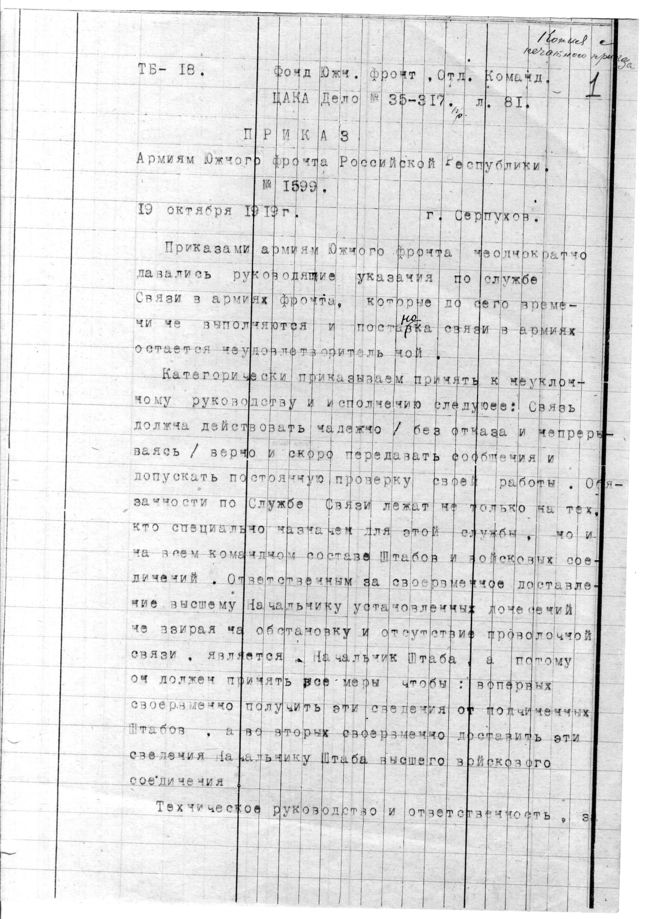 Копия с
печатного приказа
ТБ- 18.    Фонд Южн. фронт , Отд. Команд.    1
ЦАКА Дело № 35-317. л. 81.
П Р И К А З
Армиям Южного фронта Российской Республики.
№ 1599.
19 октября 1919г.    г. Серпухов.
Приказами армиям Южного фронта неоднократно
давались руководящие указания по службе
Связи в армиях фронта, которые до сего време-
ни не выполняются и постановка связи в армиях
остается неудовлетворитель ной .
Категорически приказываем принять к неуклон-
ному руководству и исполнению следуюее: Связь
должна действовать надежно / без отказа и непреры-
ваясь / верно и скоро передавать сообщения и
допускать постоянную проверку своей работы . Обя-
занности по Службе Связи лежат не только на тех,
кто специально назначен для этой службы , но и
на всем командном составе Штабов и войсковых сое-
динений . Ответственным за своервменное доставле-
ние высшему Начальнику установленных донесений
не взирая на обстановку и отсутствие проволочной
связи , является Начальник Штаба , а потому
он должен принять все меры чтобы : вопервых
своервменно получить эти сведения от подчиненных
Штабов , а во вторых своервменно доставить эти
сведения Начальнику Штаба высшего войскового
соединения .
Техническое руководство и ответственность , за